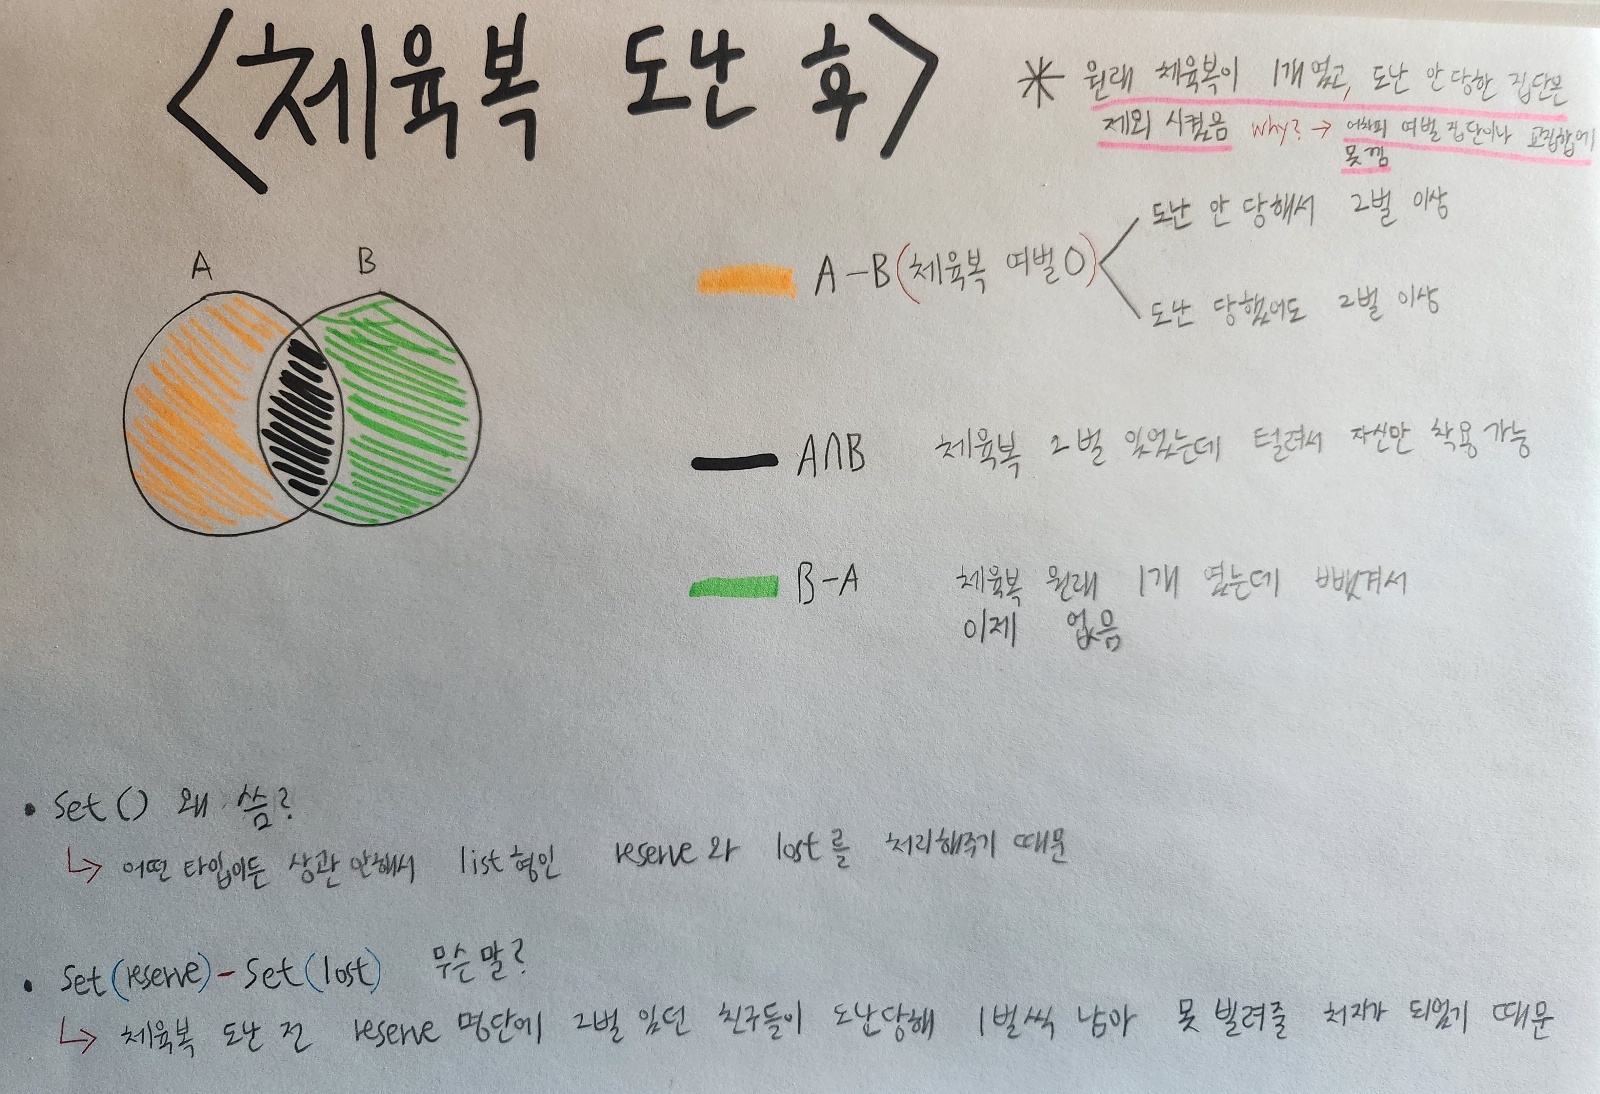 <체육복 도난 후>
* 원래 체육복이 1개 였고, 도난 안 당한 집단은
제외 시켰음 why? → 어차피 여벌 집단이나 교집합에
못 낌
A B
A-B(체육복 여벌 O)
도난 안 당해서 2벌 이상
도난 당했어도 2벌 이상
A∩B 체육복 2벌 있었는데 털려서 자신만 착용 가능
B-A 체육복 원래 1개 였는데 뺏겨서
이제 없음
• set() 왜 씀?
↳ 어떤 타입이든 상관 안해서 list형인 reserve와 lost를 처리해주기 때문
• set(reserve)-set(lost) 무슨 말?
↳ 체육복 도난 전 reserve 명단에 2벌 있던 친구들이 도난당해 1벌씩 남아 못 빌려줄 처지가 되었기 때문